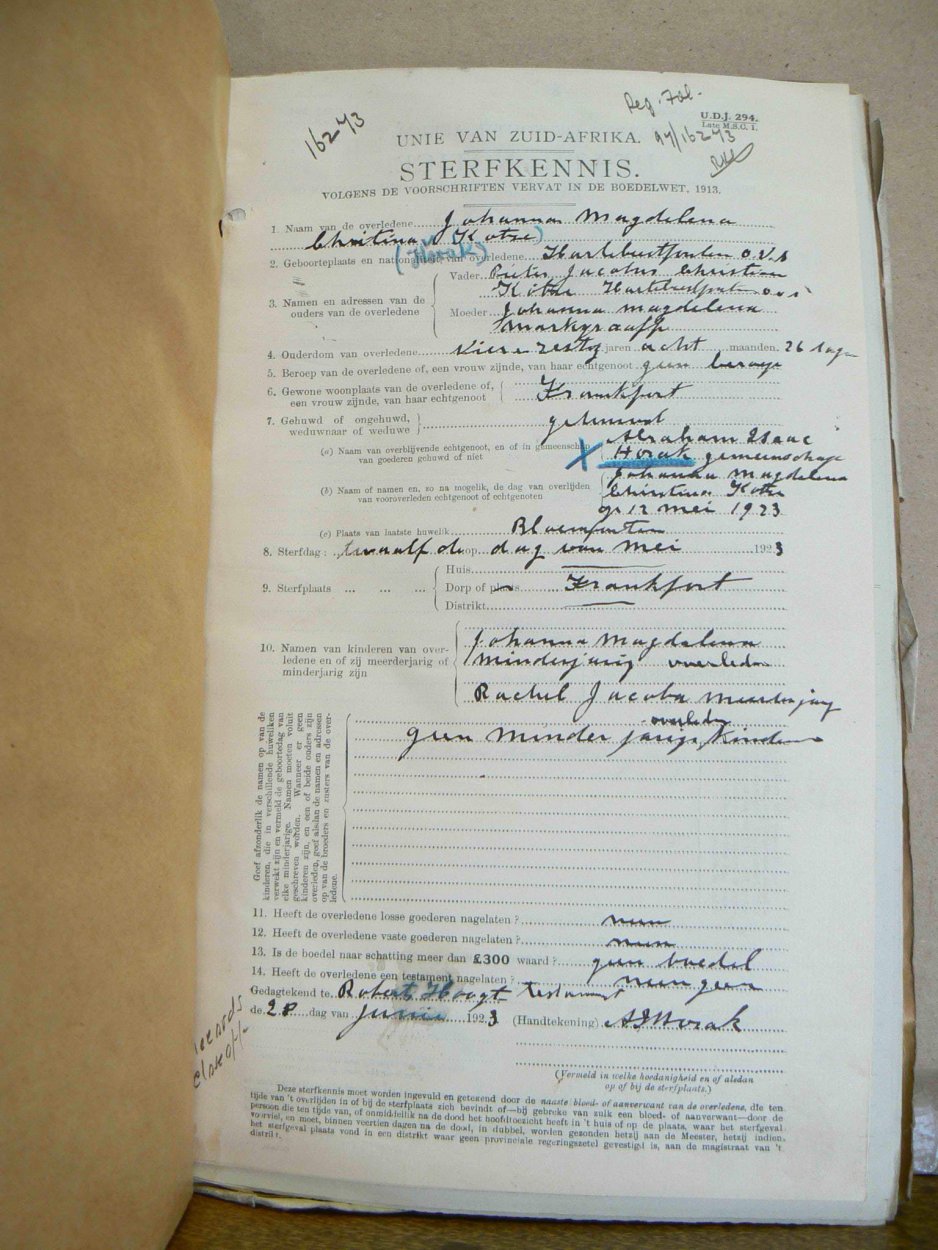 16273
Reg. Fol.
U.D.J. 294.
Late M.S.C. 1.
UNIE VAN ZUID-AFRIKA.
STERFKENNIS.
VOLGENS DE VOORSCHRIFTEN VERVAT IN DE BOEDELWET, 1913.
1. Naam van de overledene Johanna Magdelena
Christina Kotze
(Horak)
2. Geboorteplaats en nationaliteit van overledene Hartebeestfontein O.V.S
3. Namen en adressen van de ouders van de overledene
Vader Pieter Jacobus Christian
Kotze Hartebeestfontein O.V.S
Moeder Johanna Magdelena
Markgraaff
4. Ouderdom van overledene Vier en zestig jaren acht maanden. 26 dagen
5. Beroep van de overledene of, een vrouw zijnde, van haar echtgenoot geen beroep
6. Gewone woonplaats van de overledene of, een vrouw zijnde, van haar echtgenoot Frankfort
7. Gehuwd of ongehuwd, weduwnaar of weduwe gehuwd
(a) Naam van overblijvende echtgenoot, en of in gemeenschap van goederen gehuwd of niet
Abraham Isaac
X Horak gemeenschap
(b) Naam of namen en, zo na mogelik, de dag van overlijden van vooroverleden echtgenoot of echtgenoten
Johanna Magdelena
Christina Kotze
op 12 Mei 1923
(c) Plaats van laatste huwelik Bloemfontein
8. Sterfdag: twaalf de op dag van Mei 1923
9. Sterfplaats ... ... ...
Huis
Dorp of plaats Frankfort
Distrikt
10. Namen van kinderen van overledene en of zij meerderjarig of minderjarig zijn
Johanna Magdelena
Minderjarig overleden
Rachel Jacoba Meerderjarig
overleden
geen minder jarige kinderen
Geef afzonderlik de namen op van de
kinderen, die in verschillende huweliken
verwekt zijn en vermeld de geboortedag van
elke minderjarige. Namen moeten voluit
geschreven worden. Wanneer er geen
kinderen zijn, en een of beide ouders zijn
overleden, geef alsdan de namen en adressen
op van de broeders en zusters van de overledene.
11. Heeft de overledene losse goederen nagelaten? neen
12. Heeft de overledene vaste goederen nagelaten? neen
13. Is de boedel naar schatting meer dan £300 waard? geen boedel
14. Heeft de overledene een testament nagelaten? neen geen
Testament
Gedagtekend te Robert Hoogt
de 28 dag van Junie 1923 (Handtekening) AI Horak
(Vermeld in welke hoedanigheid en of alsdan
op of bij de sterfplaats.)
Deze sterfkennis moet worden ingevuld en getekend door de naaste bloed- of aanverwant van de overledene, die ten
tijde van 't overlijden in of bij de sterfplaats zich bevindt of—bij gebreke van zulk een bloed- of aanverwant—door de
persoon die ten tijde van, of onmiddellik na de dood het hoofdtoezicht heeft in 't huis of op de plaats, waar het sterfgeval
voorviel, en moet, binnen veertien dagen na de dood, in dubbel, worden gezonden hetzij aan de Meester, hetzij indien,
het sterfgeval plaats vond in een distrikt waar geen provinciale regeringszetel gevestigd is, aan de magistraat van 't
distrikt.